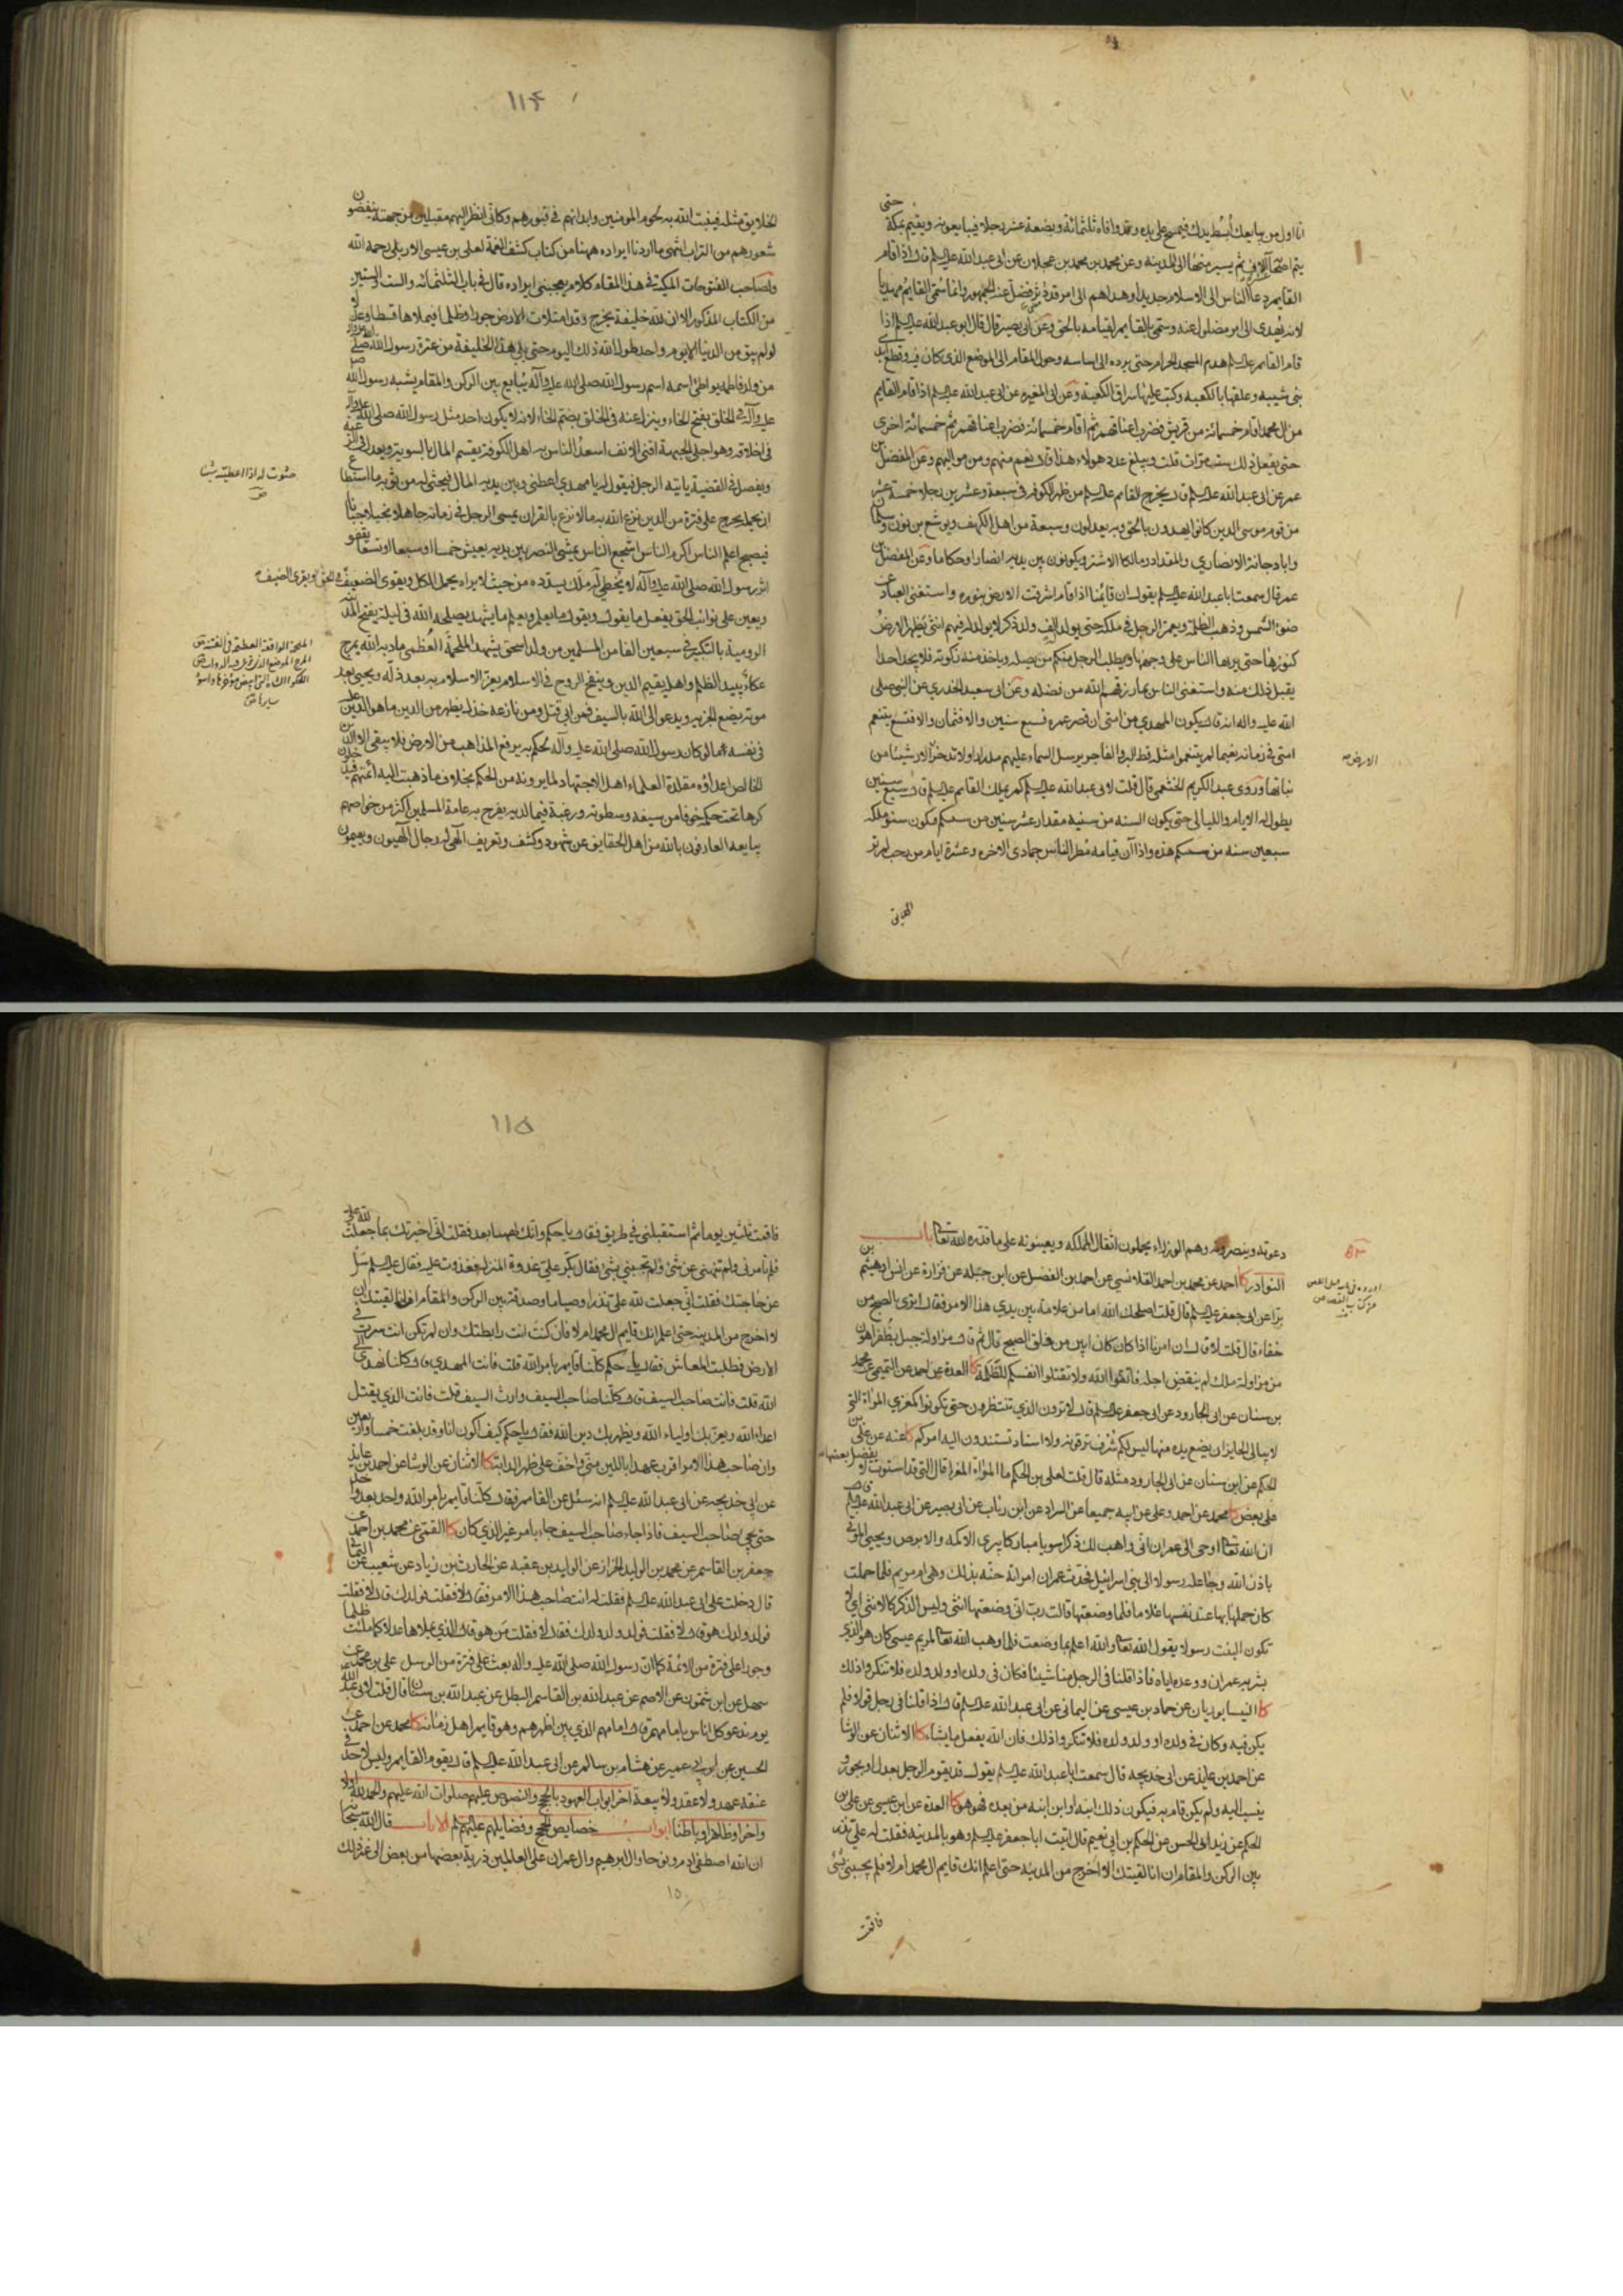 انا اول من يبايعك ابسط يدك فيمسح على يده وقد وافاه ثلثمائة وبضعة عشر رجلا فيبايعونه ويقيم بمكة حتى
يتم اصحابه عشرة آلاف ثم يسير منها الى المدينه وعن محمد بن عجلان عن ابى عبد الله عليه السلم قال اذا قام
القايم دعا الناس الى الاسلام جديدا وهداهم الى امر قد دثر فضل عنه الجمهور وانما سمى القايم مهديا
لانه يهدى الى امر مضلول عنه وسمى بالقايم لقيامه بالحق وعن ابى بصير قال قال ابو عبد الله عليه السلم اذا
قام القايم عليه السلم هدم المسجد الحرام حتى يرده الى اساسه وحول المقام الى الموضع الذى كان فيه وقطع ايدى
بنى شيبه وعلقها بالكعبه وكتب عليها سراق الكعبة وعن ابى المغيره عن ابى عبد الله عليه السلم اذا قام القايم
من ال محمد اقام خمسمائة من قريش فضرب اعناقهم ثم اقام خمسمائة فضرب اعناقهم ثم خمسمائة اخرى
حتى يفعل ذلك ست مرات قلت ويبلغ عدد هولاء هذا قال نعم منهم ومن مواليهم وعن المفضل بن
عمر عن ابى عبد الله عليه السلم قال يخرج للقايم عليه السلم من ظهر الكوفه سبعة وعشرين رجلا خمسة عشر
من قوم موسى الذين كانوا يهدون بالحق وبه يعدلون وسبعة من اهل الكهف ويوشع بن نون وسلمان
وابا دجانة الانصاري والمقداد ومالكا الاشتر فيكونون بين يديه انصارا وحكاما وعن المفضل بن
عمر قال سمعت ابا عبد الله عليه السلم يقول ان قايمنا اذا قام اشرقت الارض بنوره واستغنى العباد عن
ضوء الشمس وذهب الظلمة ويعمر الرجل فى ملكه حتى يولد له الف ولد ذكر لا يولد له فيهم انثى وتظهر الارض
كنوزها حتى يراها الناس على وجهها ويطلب الرجل منكم من يصله وياخذ منه زكوته فلا يجد احدا
يقبل ذلك منه واستغنى الناس بما رزقهم الله من فضله وعن ابى سعيد الخدري عن النبى صلى
الله عليه واله انه قال يكون المهدي من امتى ان قصر عمره فسبع سنين والا فثمان والا فتسع يتنعم
امتى فى زمانه نعيما لم يتنعموا مثله قط البر والفاجر يرسل السماء عليهم مدرارا ولا تدخر الارض شيئا من
الارض
نباتها وروى عبد الكريم الخثعمى قال قلت لابى عبد الله عليه السلم كم يملك القايم عليه السلم قال سبع سنين
يطول له الايام والليالى حتى يكون السنه من سنيه مقدار عشر سنين من سنيكم فيكون سنو ملكه
سبعين سنه من سنيكم هذه واذا آن قيامه مطر الناس جمادى الاخره وعشرة ايام من رجب لم تر
الخلايق
١١٤
الخلايق مثله فينبت الله به لحوم المومنين وابدانهم فى قبورهم وكانى انظر اليهم مقبلين من جهينة ينفضون
شعورهم من التراب انتهى ما اردنا ايراده ههنا من كتاب كشف الغمة لعلى بن عيسى الاربلى رحمه الله
ولصاحب الفتوحات المكية فى هذا المقام كلام يعجبنى ايراده قال فى باب الثلثمائه والست والستين
من الكتاب المذكور الا ان لله خليفة يخرج وقد امتلات الارض جورا وظلما فيملاها قسطا وعدلا
لو لم يبق من الدنيا الا يوم واحد طول الله ذلك اليوم حتى يلى هذا الخليفة من عترة رسول الله صلى الله عليه واله
من ولد فاطمه يواطئ اسمه اسم رسول الله صلى الله عليه وآله يبايع بين الركن والمقام يشبه رسول الله صلى الله
عليه وآله فى الخلق بفتح الخاء وينزل عنه فى الخلق بضم الخاء لانه لا يكون احد مثل رسول الله صلى الله عليه واله
فى اخلاقه وهو اجلى الجبهة اقنى الانف اسعد الناس به اهل الكوفة يقسم المال بالسوية ويعدل فى الرعية
ويفصل فى القضية ياتيه الرجل فيقول له يا مهدى اعطنى وبين يديه المال فيحثى له من ثوبه ما استطاع
حثوت له اذا اعطيته شيئا
ان يحمله يخرج على فترة من الدين يزع الله به ما لا يزع بالقران يمسى الرجل فى زمانه جاهلا بخيلا جبانا
فيصبح اعلم الناس اكرم الناس اشجع الناس يمشى النصر بين يديه يعيش خمسا او سبعا او تسعا يقفو
اثر رسول الله صلى الله عليه وآله لا يخطى له ملك يسدده من حيث لا يراه يحمل الكل ويقوى الضعيف فى الحق ويقرى الضيف
ويعين على نوائب الحق يفعل ما يقول ويقول ما يعلم ويعلم ما يشهد يصلحه الله فى ليلة يفتح المدينة
الرومية بالتكبير فى سبعين الفا من المسلمين من ولد اسحق يشهد الملحمة العظمى مادبة الله بمرج
عكاء يبيد الظلم واهله يقيم الدين وينفخ الروح فى الاسلام يعز الاسلام به بعد ذله ويحيى بعد
موته يضع الجزيه ويدعو الى الله بالسيف فمن ابى قتل ومن نازعه خذل يظهر من الدين ما هو الدين عليه
فى نفسه ما لو كان رسول الله صلى الله عليه وآله لحكم به يرفع المذاهب من الارض فلا يبقى الا الدين
الخالص اعداؤه مقلدة العلماء اهل الاجتهاد لما يرونه من الحكم بخلاف ما ذهبت اليه ائمتهم فيدخلون
كرها تحت حكمه خوفا من سيفه وسطوته ورغبة فيما لديه يفرح به عامة المسلمين اكثر من خواصهم
يبايعه العارفون بالله من اهل الحقايق عن شهود وكشف وتعريف الهى له رجال الهيون ويقيمون
دعوته وينصرونه وهم الوزراء يحملون اثقال المملكه ويعينونه على ما قلده الله تعالى باب
٥٣
النوادر كا احمد عن محمد بن احمد القلانسى عن احمد بن الفضل عن ابن جبله عن فزارة عن انس او هيثم بن
برا عن ابى جعفر عليه السلم قال قلت اصلحك الله اما من علامة بين يدي هذا الامر فقال اترى بالصبح من
خفاء قال قلت لا قال ان امرنا اذا كان كان ابين من فلق الصبح قال ثم قال مزاولة جبل بظفر اهون
من مزاولة ملك لم ينقض اجله فاتقوا الله ولا تقتلوا انفسكم للظلمة كا العدة عن احمد عن التميمى عن محمد
بن سنان عن ابى الجارود عن ابى جعفر عليه السلم قال لا ترون الذي تنتظرون حتى تكونوا كالمعزي المواة التى
لا يبالى الخابر ان يضع يده منها ليس لكم شرف ترقونه ولا سناد تستندون اليه اموركم كا عنه عن على بن
الحكم عن ابن سنان عن ابى الجارود مثله قال قلت لعلى بن الحكم ما المواة المعز قال التى قد استوت لا يفضل بعضها
على بعض كا محمد عن احمد وعلى عن ابيه جميعا عن السراد عن ابن رياب عن ابى بصير عن ابى عبد الله عليه السلم قال
ان الله تعالى اوحى الى عمران انى واهب لك ذكرا سويا مباركا يبرى الاكمه والابرص ويحيى الموتى
باذن الله وجاعله رسولا الى بنى اسرائيل فحدث عمران امراته حنه بذلك وهى ام مريم فلما حملت
كان حملها بها عند نفسها غلاما فلما وضعتها قالت رب انى وضعتها انثى وليس الذكر كالانثى اي لا
تكون البنت رسولا يقول الله تعالى والله اعلم بما وضعت فلما وهب الله تعالى لمريم عيسى كان هو الذي
بشر به عمران ووعده اياه فاذا قلنا فى الرجل منا شيئا فكان فى ولده او ولد ولده فلا تنكروا ذلك
كا النيسابوريان عن حماد بن عيسى عن اليمانى عن ابى عبد الله عليه السلم قال اذا قلنا فى رجل قولا فلم
يكن فيه وكان فى ولده او ولد ولده فلا تنكروا ذلك فان الله يفعل ما يشاء كا الاثنان عن الوشا
عن احمد بن عايذ عن ابى خديجه قال سمعت ابا عبد الله عليه السلم يقول قد يقوم الرجل بعدل او بجور و
ينسب اليه ولم يكن قام به فيكون ذلك ابنه او ابن ابنه من بعده فهو هو كا العدة عن ابن عيسى عن على بن
الحكم عن زيد ابى الحسن عن الحكم بن ابى نعيم قال اتيت ابا جعفر عليه السلم وهو بالمدينه فقلت له على نذر
بين الركن والمقام ان انا لقيتك الا اخرج من المدينه حتى اعلم انك قايم ال محمد ام لا فلم يجبنى بشئ
فاقمت
١١٥
فاقمت ثلثين يوما ثم استقبلنى فى طريق فقال يا حكم وانك لههنا بعد فقلت انى اخبرتك بما جعلت لله على
فلم تامرنى ولم تنهنى عن شئ ولم تجبنى بشئ فقال بكر على غدوة المنزل فغدوت عليه فقال عليه السلم سل
عن حاجتك فقلت انى جعلت لله على نذرا وصياما وصدقة بين الركن والمقام ان انا لقيتك ان
لا اخرج من المدينه حتى اعلم انك قايم ال محمد ام لا فان كنت انت رابطتك وان لم تكن انت سرت فى
الارض فطلبت المعاش فقال يا حكم كلنا قايم بامر الله قلت فانت المهدي قال كلنا نهدي الى
الله قلت فانت صاحب السيف قال كلنا صاحب السيف ووارث السيف قلت فانت الذي يقتل
اعداء الله ويعز بك اولياء الله ويظهر بك دين الله فقال يا حكم كيف اكون انا وقد بلغت خمسا واربعين
وان صاحب هذا الامر اقرب عهدا باللبن منى واخف على ظهر الدابة كا الاثنان عن الوشا عن احمد بن عايذ
عن ابى خديجه عن ابى عبد الله عليه السلم انه سئل عن القايم فقال كلنا قايم بامر الله واحد بعد واحد
حتى يجئ صاحب السيف فاذا جاء صاحب السيف جاء بامر غير الذي كان كا القمى عن محمد بن احمد عن
جعفر بن القاسم عن محمد بن الوليد الخزاز عن الوليد بن عقبه عن الحارث بن زياد عن شعيب عن الثمالى
قال دخلت على ابى عبد الله عليه السلم فقلت له انت صاحب هذا الامر فقال لا فقلت فولدك قال لا فقلت
فولد ولدك هو قال لا فقلت فولد ولد ولدك فقال لا فقلت من هو قال الذي يملاها عدلا كما ملئت ظلما
وجورا على فترة من الائمة كما ان رسول الله صلى الله عليه واله بعث على فترة من الرسل على بن محمد عن
سهل عن ابن شمون عن الاصم عن عبد الله بن القاسم البطل عن عبد الله بن سنان قال قلت لابى عبد الله
يوم ندعو كل اناس بامامهم قال امامهم الذي بين اظهرهم وهو قايم اهل زمانه كا محمد عن احمد عن
الحسين عن ابن ابى عمير عن هشام بن سالم عن ابى عبد الله عليه السلم قال يقوم القايم وليس لاحد فى
عنقه عهد ولا عقد ولا بيعة اخر ابواب العهود بالحجج والنصوص عليهم صلوات الله عليهم والحمد لله اولا
واخرا وظاهرا وباطنا ابواب خصايص الحجج وفضايلهم عليهم السلم الايات قال الله سبحانه
ان الله اصطفى ادم ونوحا وال ابرهيم وال عمران على العالمين ذرية بعضها من بعض الى غير ذلك